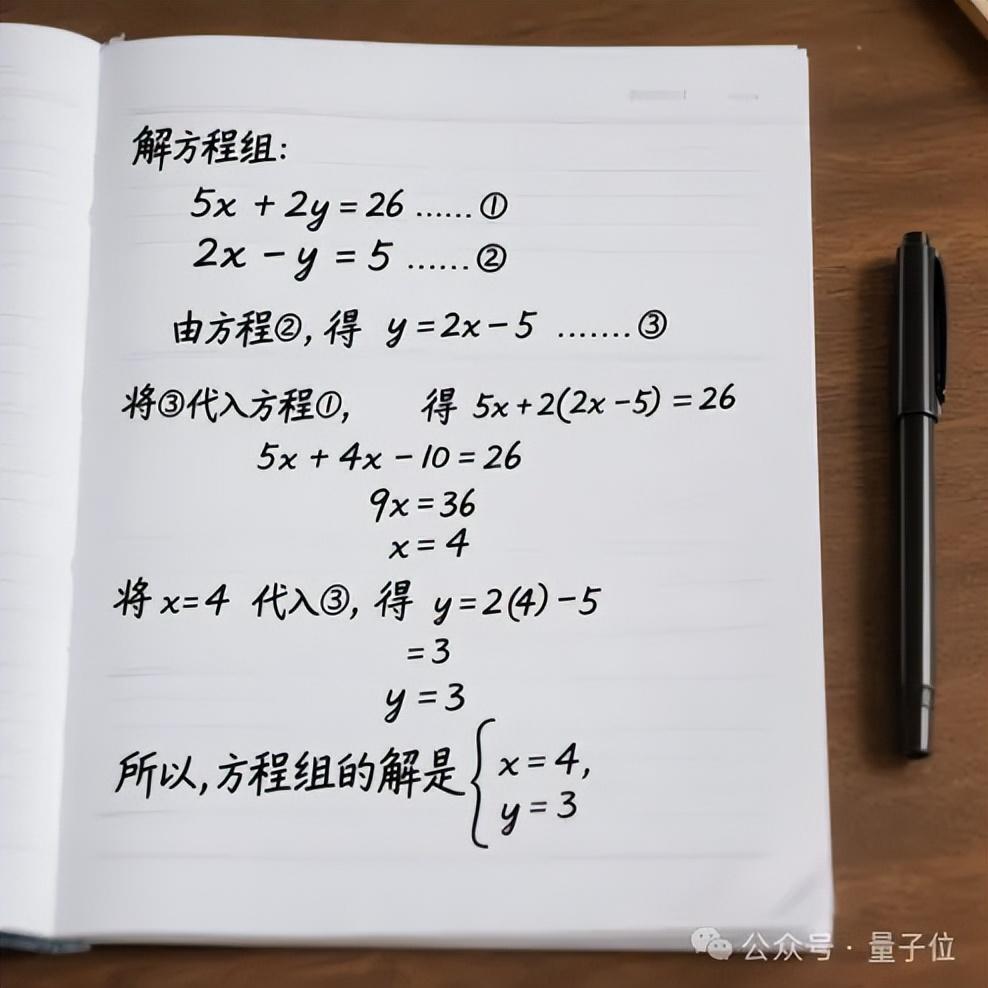 解方程组:
5x + 2y = 26 ……①
2x - y = 5 ……②
由方程②, 得 y = 2x - 5 …….③
将③代入方程①, 得 5x + 2(2x - 5) = 26
5x + 4x - 10 = 26
9x = 36
x = 4
将 x = 4 代入③, 得 y = 2(4) - 5
= 3
y = 3
所以, 方程组的解是 { x = 4,
y = 3
公众号 · 量子位